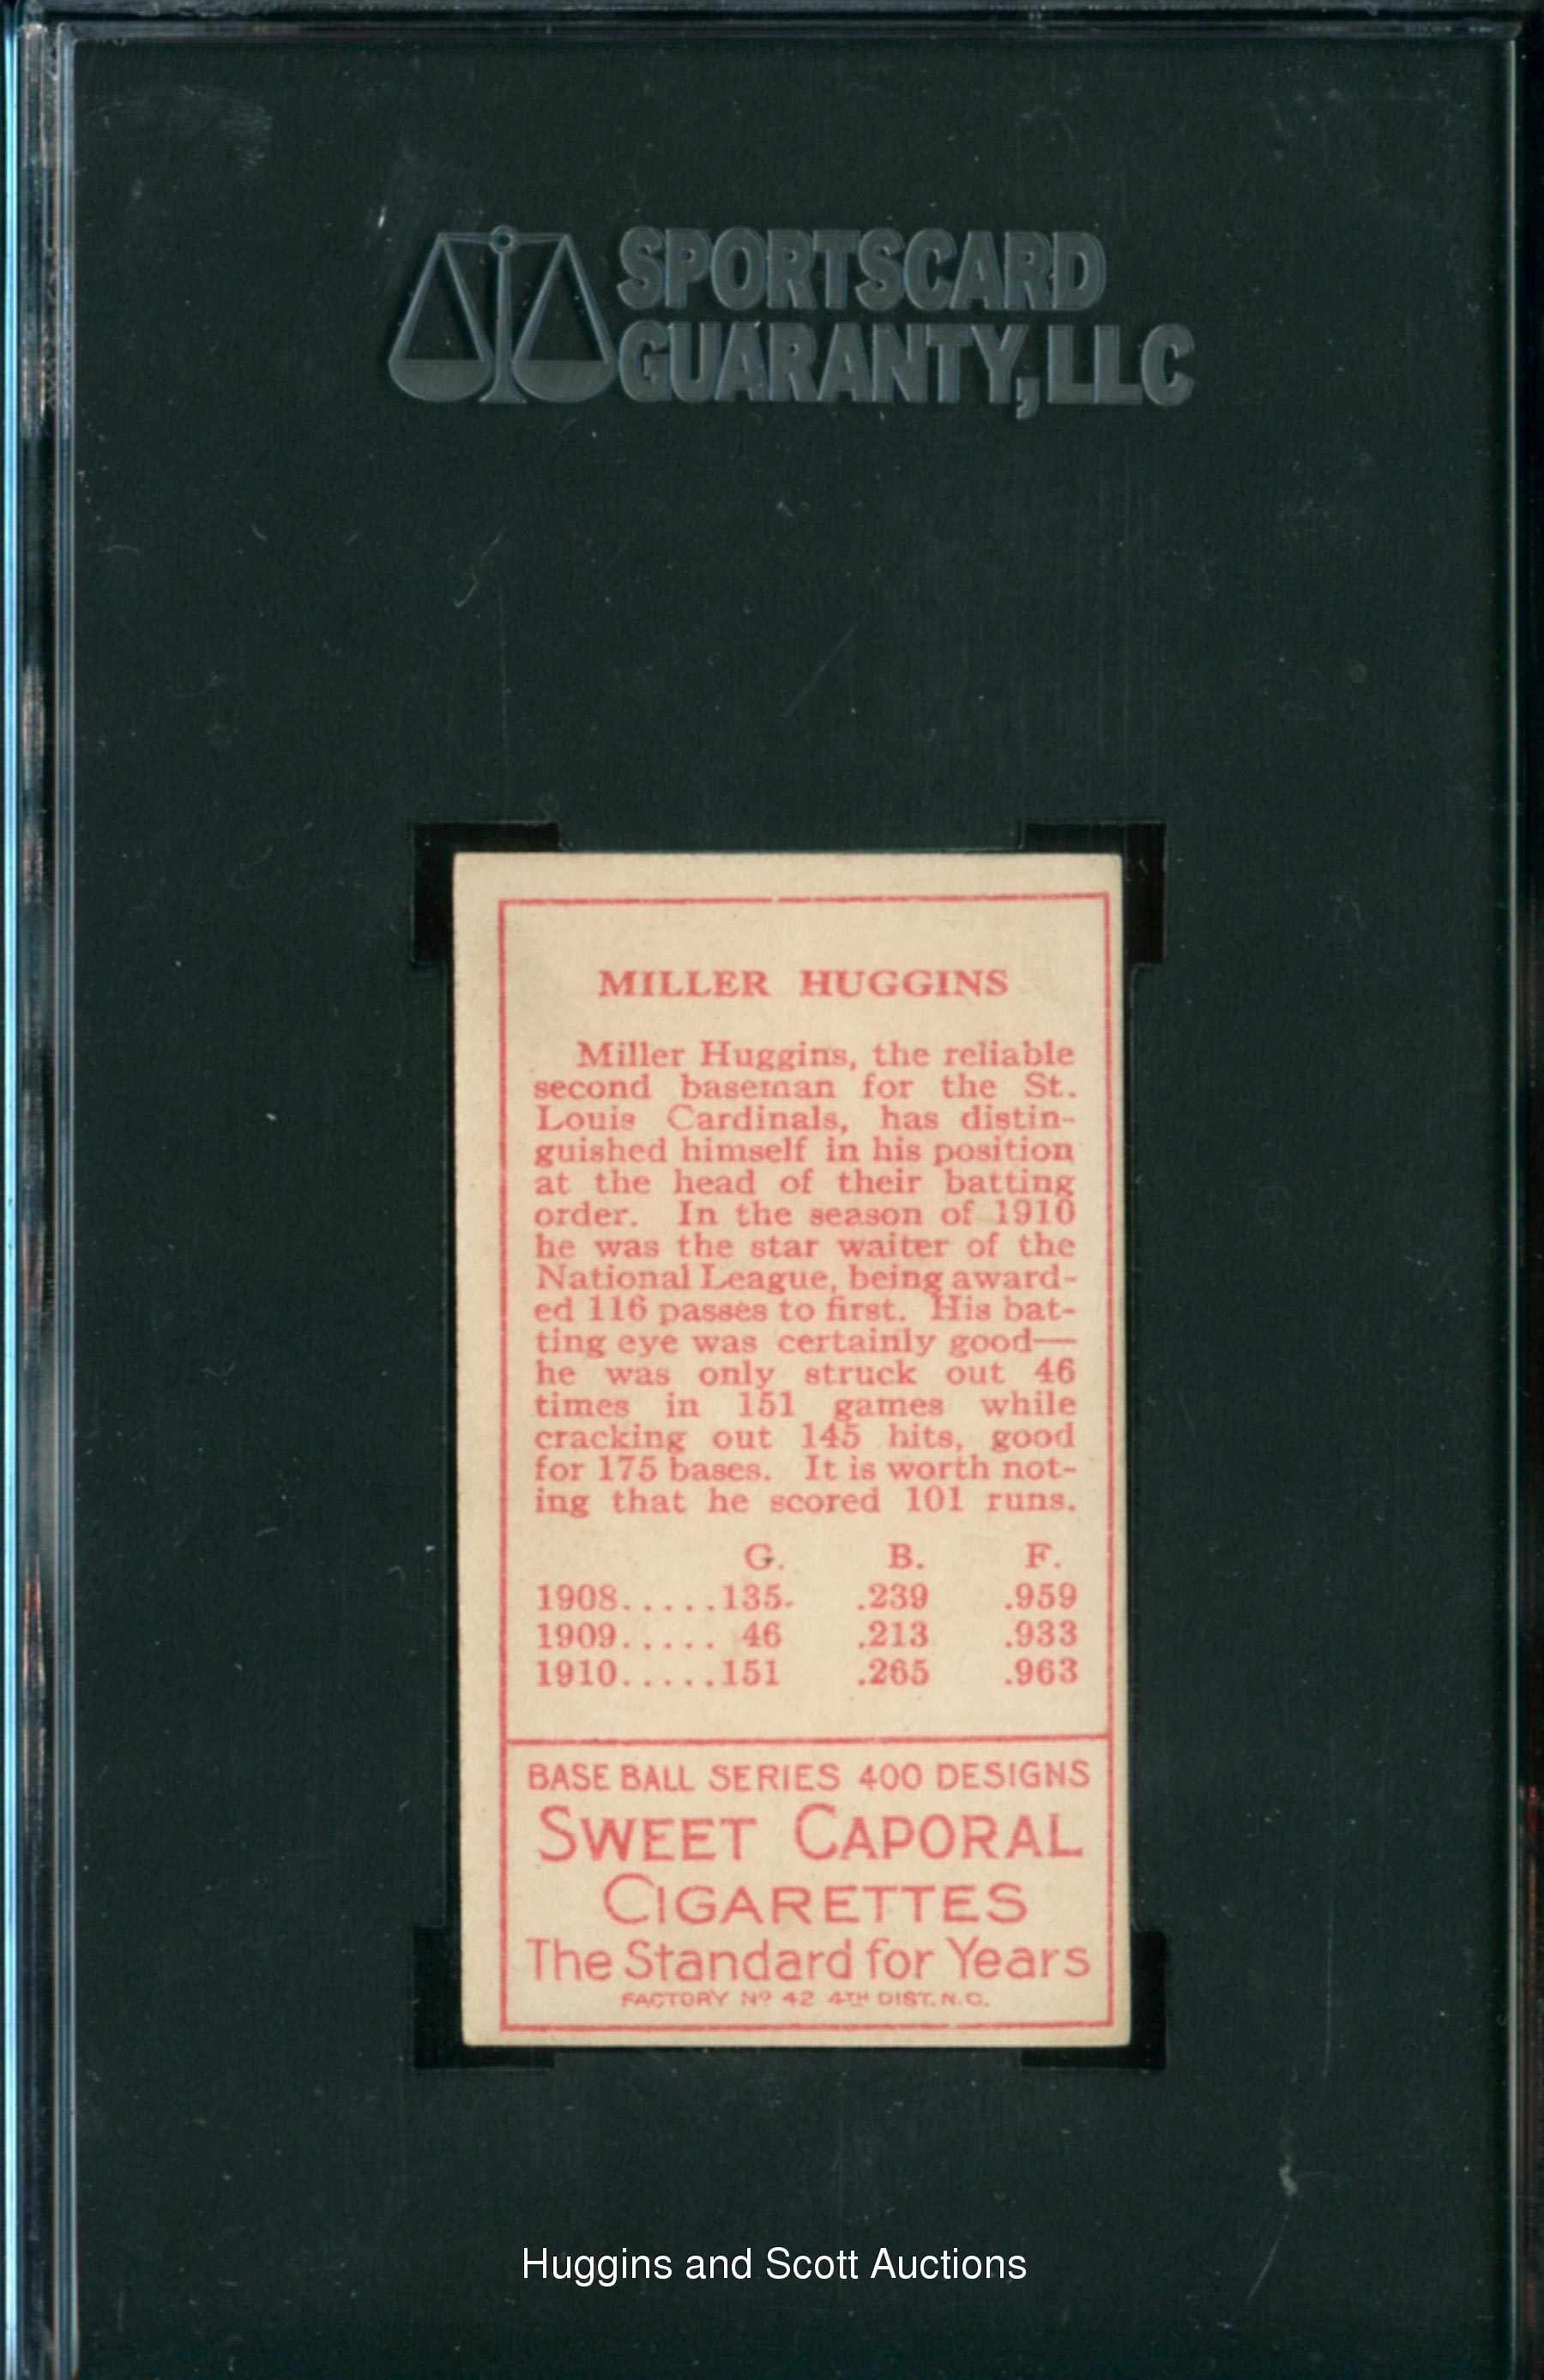 SPORTSCARD
GUARANTY, LLC
MILLER HUGGINS
Miller Huggins, the reliable
second baseman for the St.
Louis Cardinals, has distin-
guished himself in his position
at the head of their batting
order. In the season of 1910
he was the star waiter of the
National League, being award-
ed 116 passes to first. His bat-
ting eye was certainly good—
he was only struck out 46
times in 151 games while
cracking out 145 hits, good
for 175 bases. It is worth not-
ing that he scored 101 runs.
G. B. F.
1908.....135. .239 .959
1909..... 46 .213 .933
1910.....151 .265 .963
BASE BALL SERIES 400 DESIGNS
SWEET CAPORAL
CIGARETTES
The Standard for Years
FACTORY Nº 42 4TH DIST. N.C.
Huggins and Scott Auctions